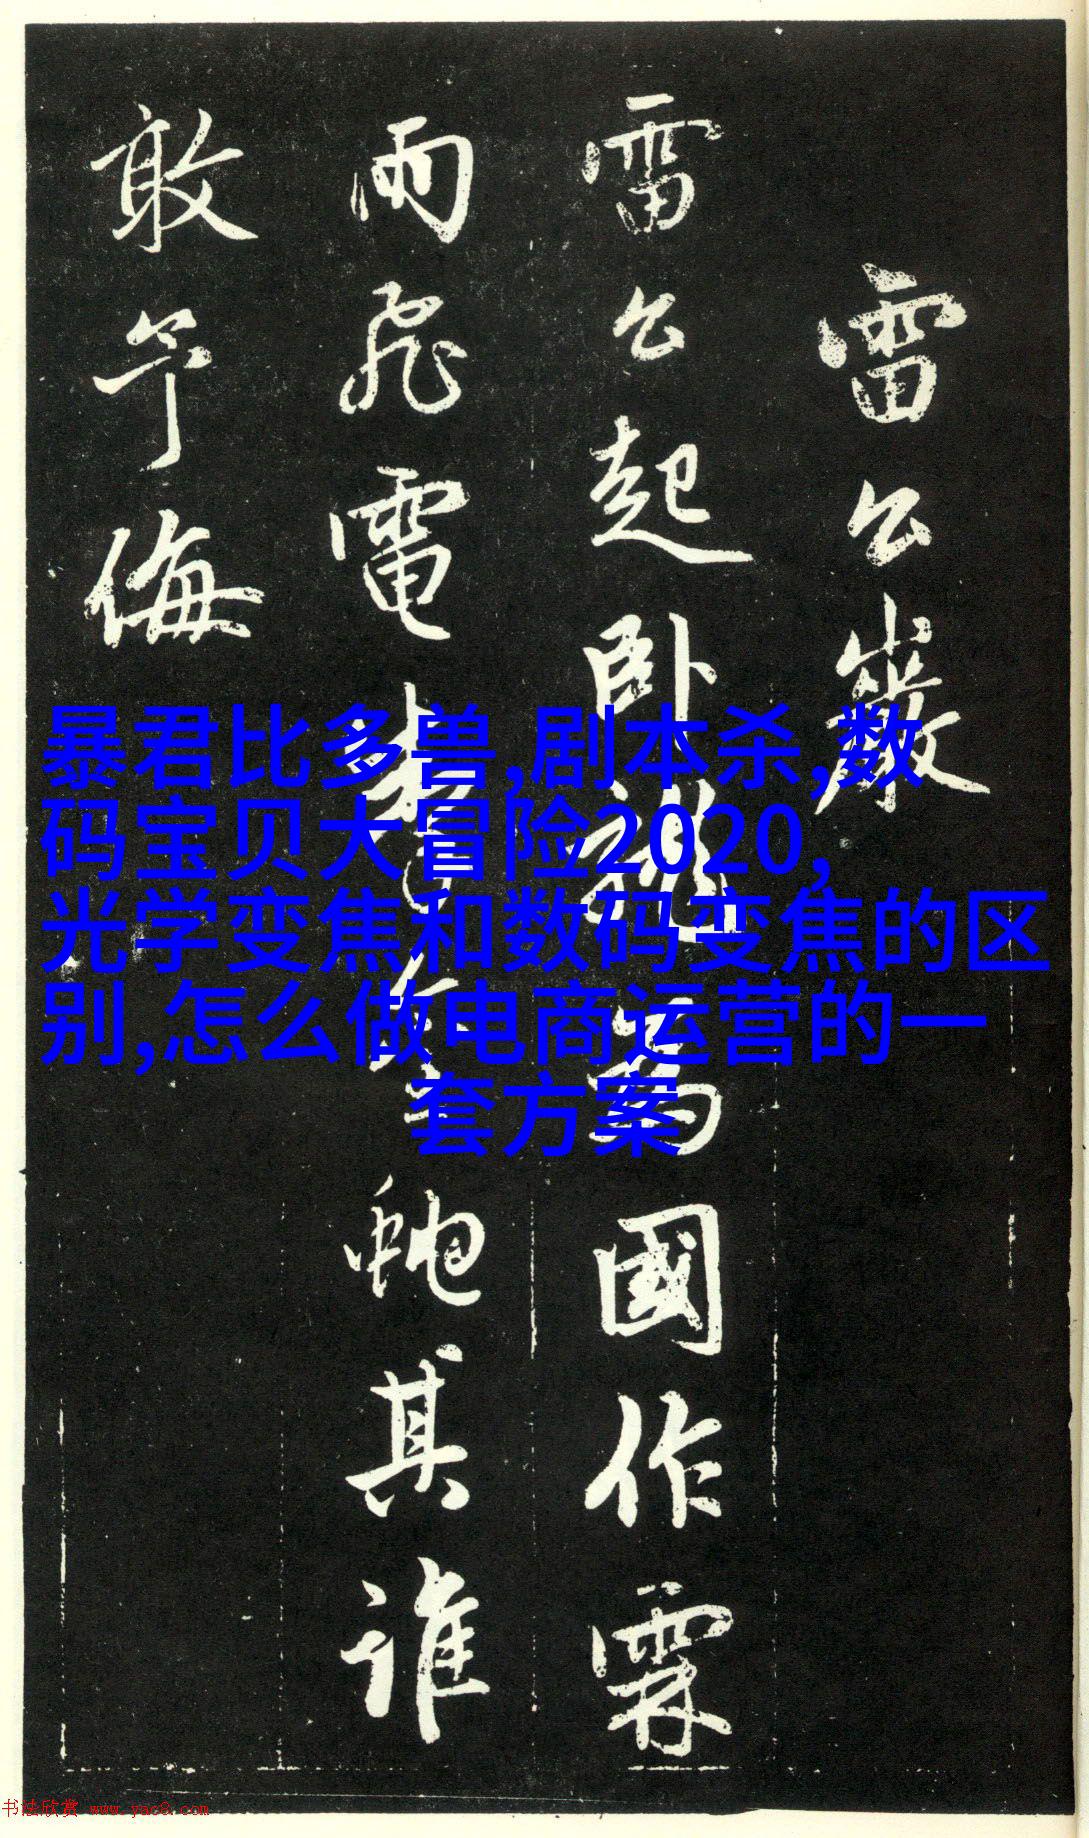 雷公巖
雷公起卧龍為國作霖
雨飛電掣金虵其誰
敢予侮
暴君比多兽,剧本杀,数
码宝贝大冒险2020,
光学变焦和数码变焦的区
别,怎么做电商运营的一
套方案
书法欣赏 www.yac8.com